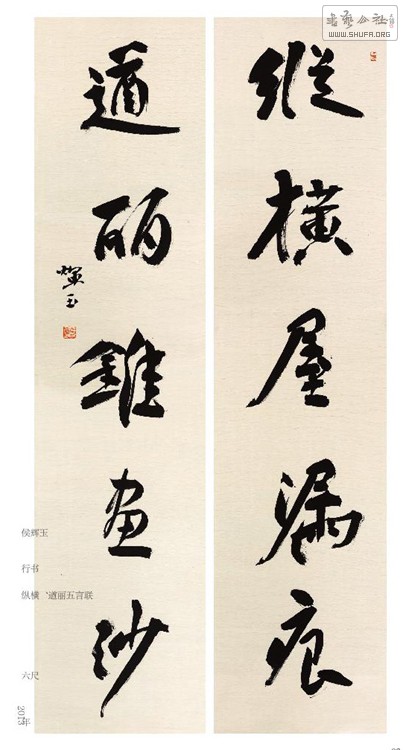 書藝公社
WWW.SHUFA.ORG
縱橫屋漏痕
遒丽錐画沙
煇玉
侯辉玉
行书
纵横〝遒丽五言联
六尺
2013年